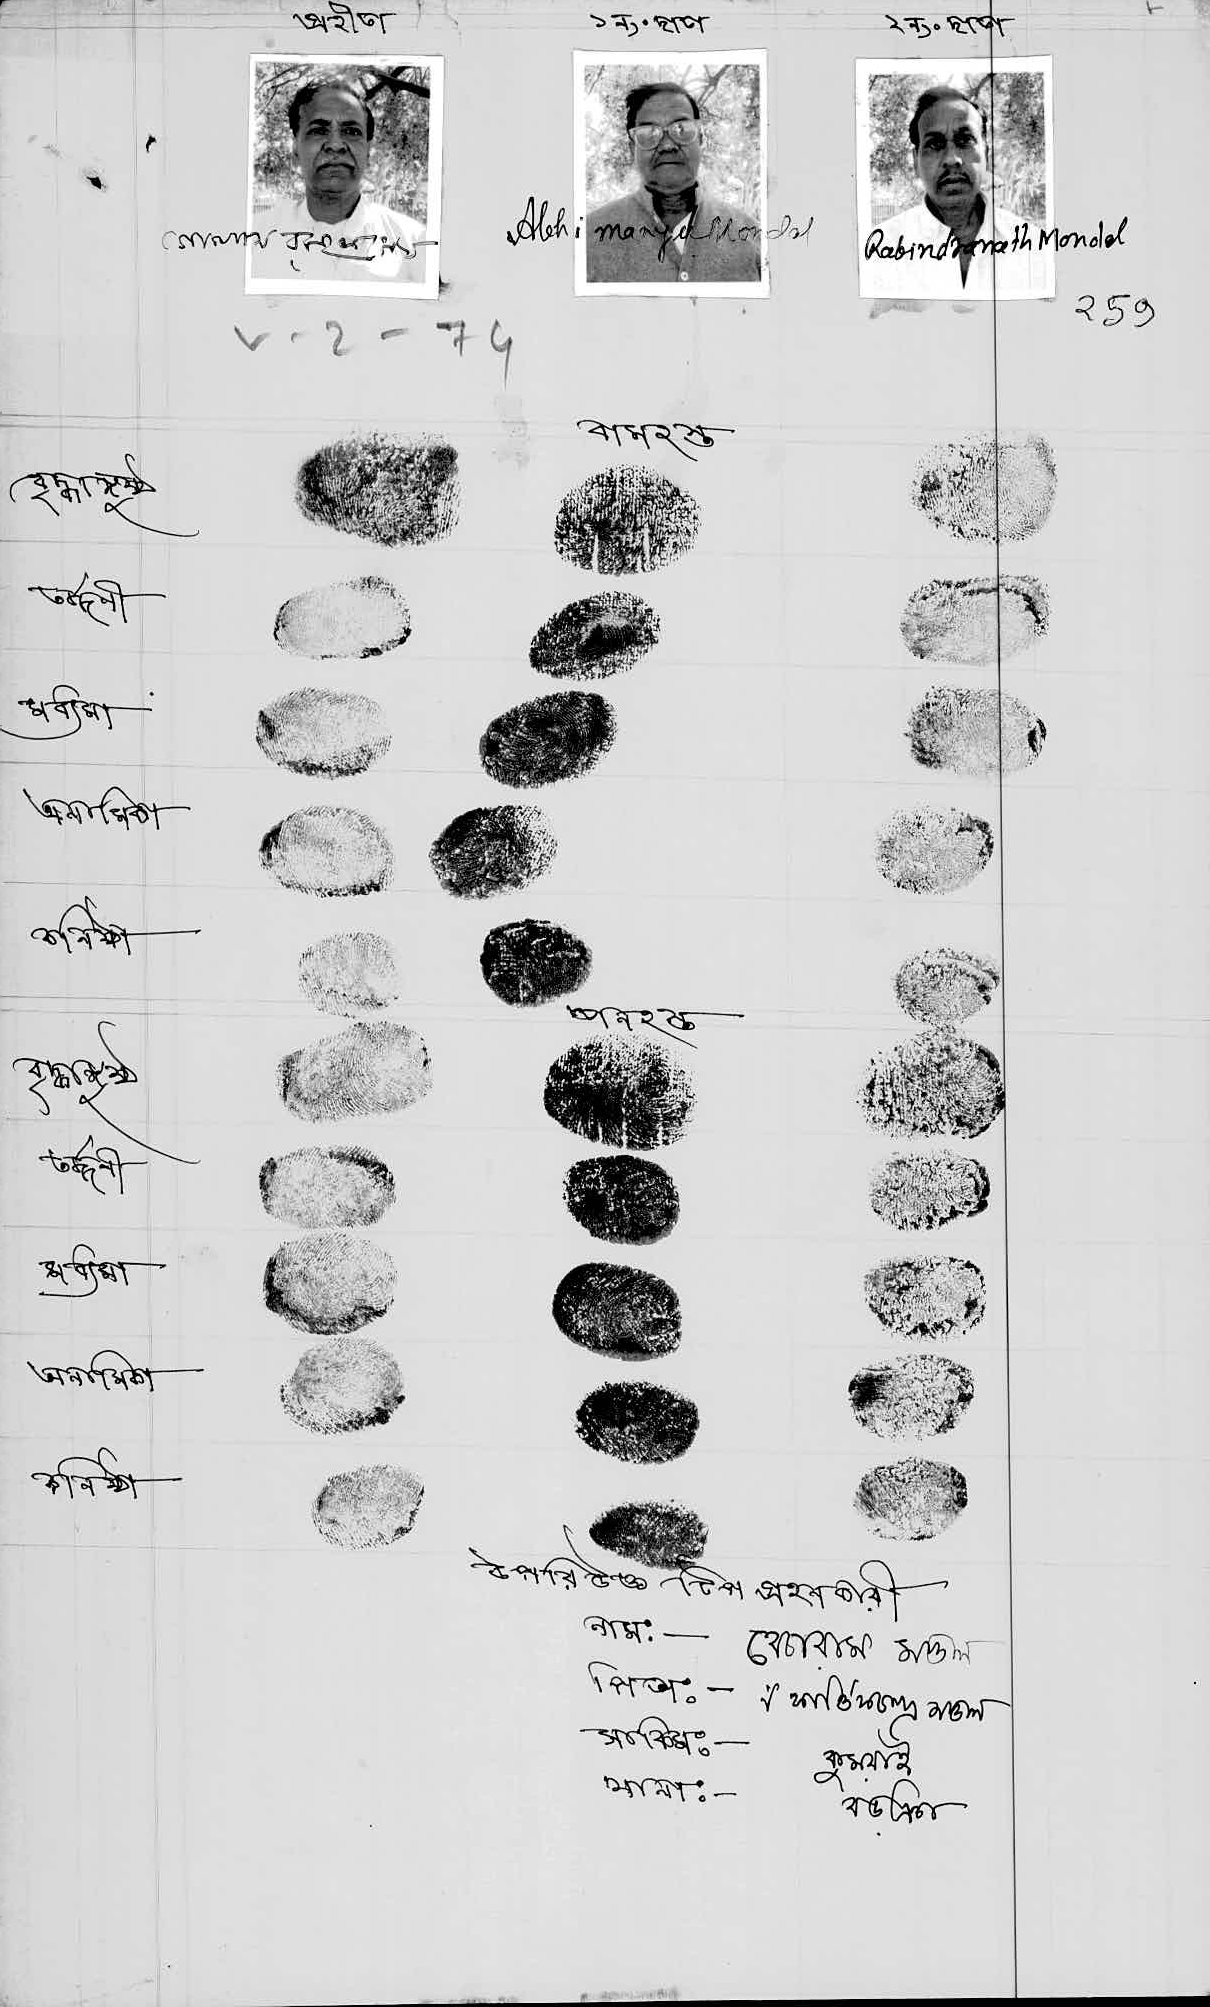 গ্রহীতা ১নং দাতা ২নং দাতা
গোলাম Abhimanyu Mondal Rabindranath Mondal
২৫৯
V-2-74
বামহস্ত
বৃদ্ধাঙ্গুষ্ঠ
তর্জ্জনী
মধ্যমা
অনামিকা
কনিষ্ঠা
ডানহস্ত
বৃদ্ধাঙ্গুষ্ঠ
তর্জ্জনী
মধ্যমা
অনামিকা
কনিষ্ঠা
উপরিউক্ত টিপ গ্রহনকারী
নাম:— বেচারাম মণ্ডল
পিতা:— মণ্ডল
সাকিম:— কুমরাই
থানা:—